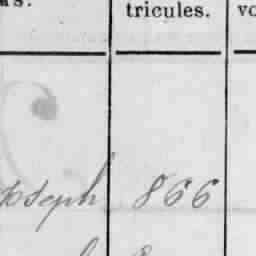 as. tricules. vo
oseph 866